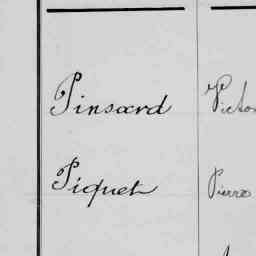 Pinsard Victor
Piquet Pierre